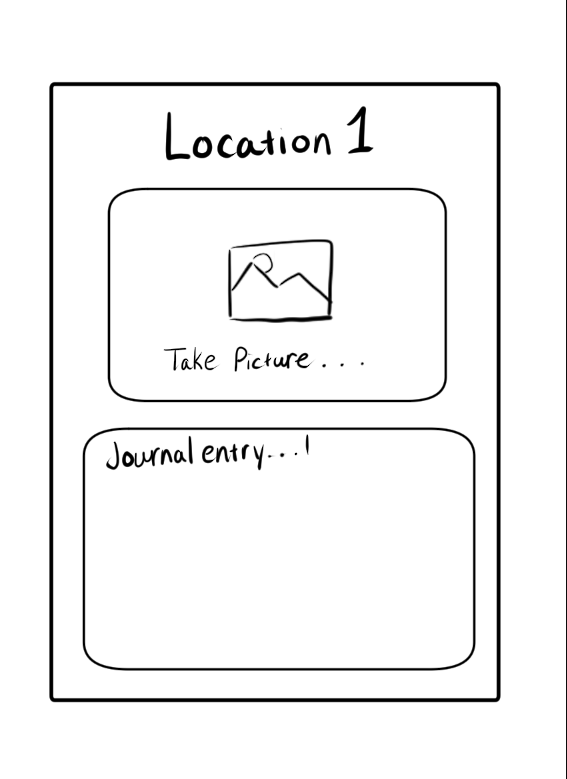 Location 1
Take Picture...
Journal entry...|